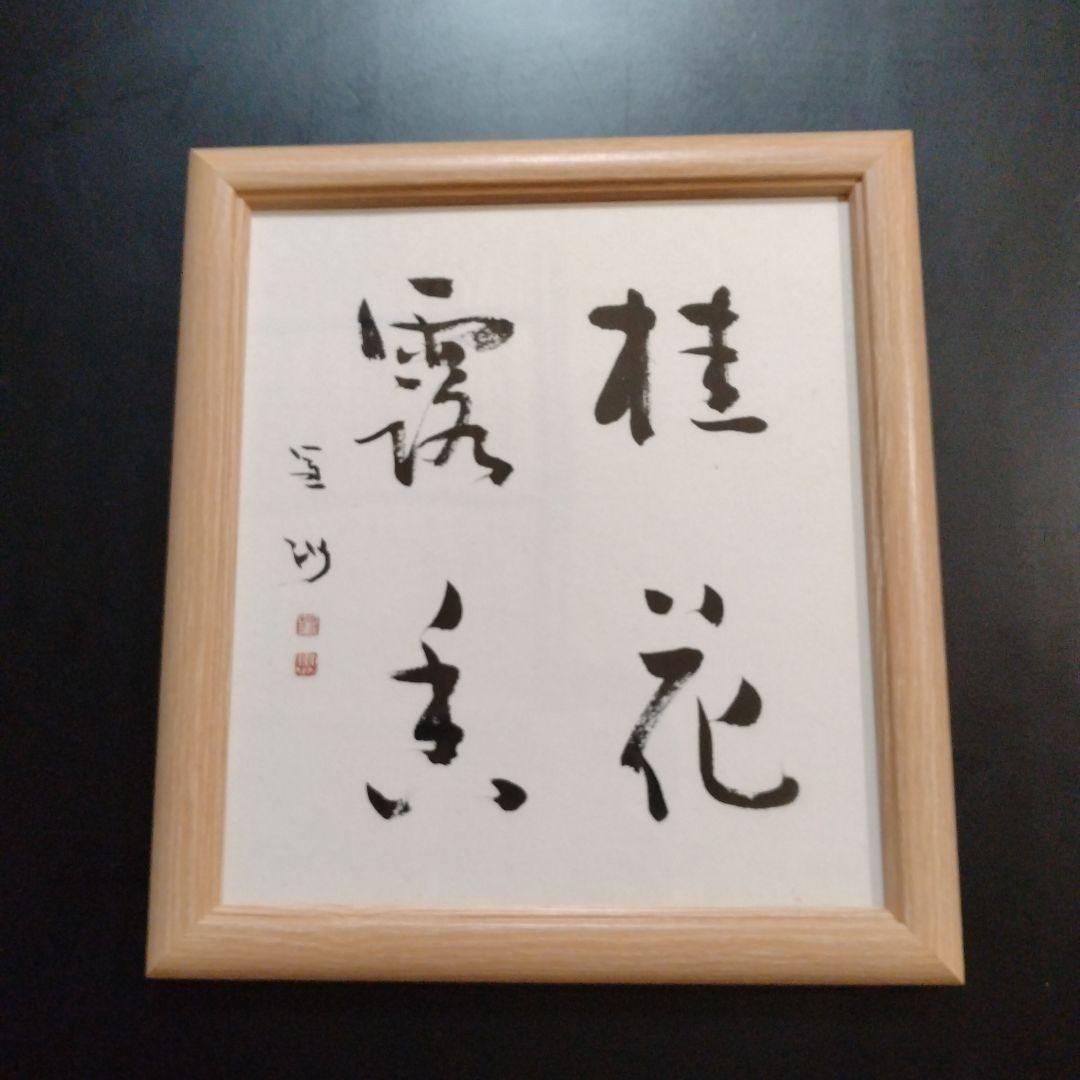 桂花
露香